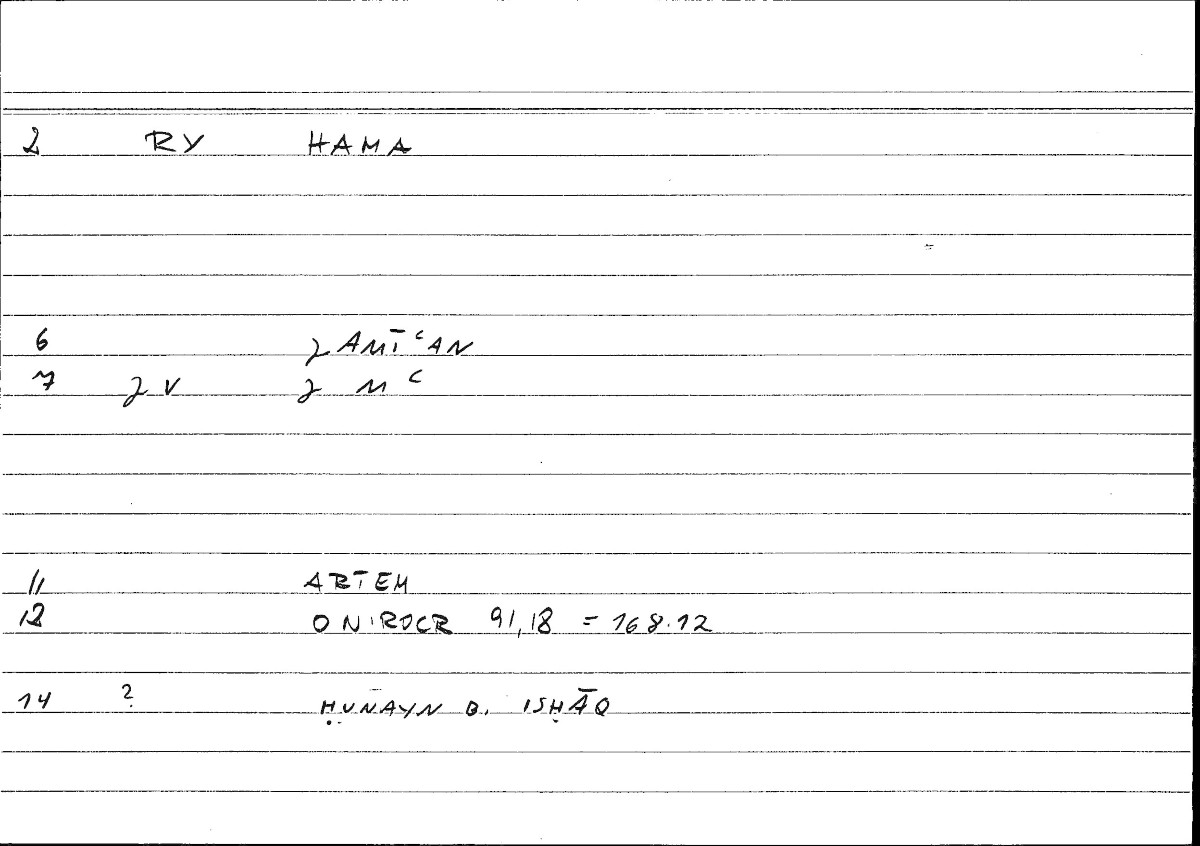 2 RY HAMA
6 ʒAMĪʿAN
7 ʒV ʒ M ʿ
11 ARTEM
12 ONIROCR 91,18 = 168.12
14 ? ḤUNAYN B. ISḤĀQ